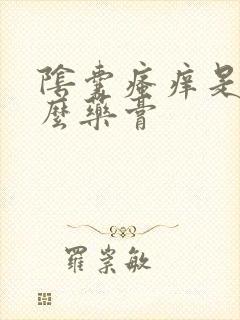 陰囊瘙痒是
麼藥膏
羅崇敏